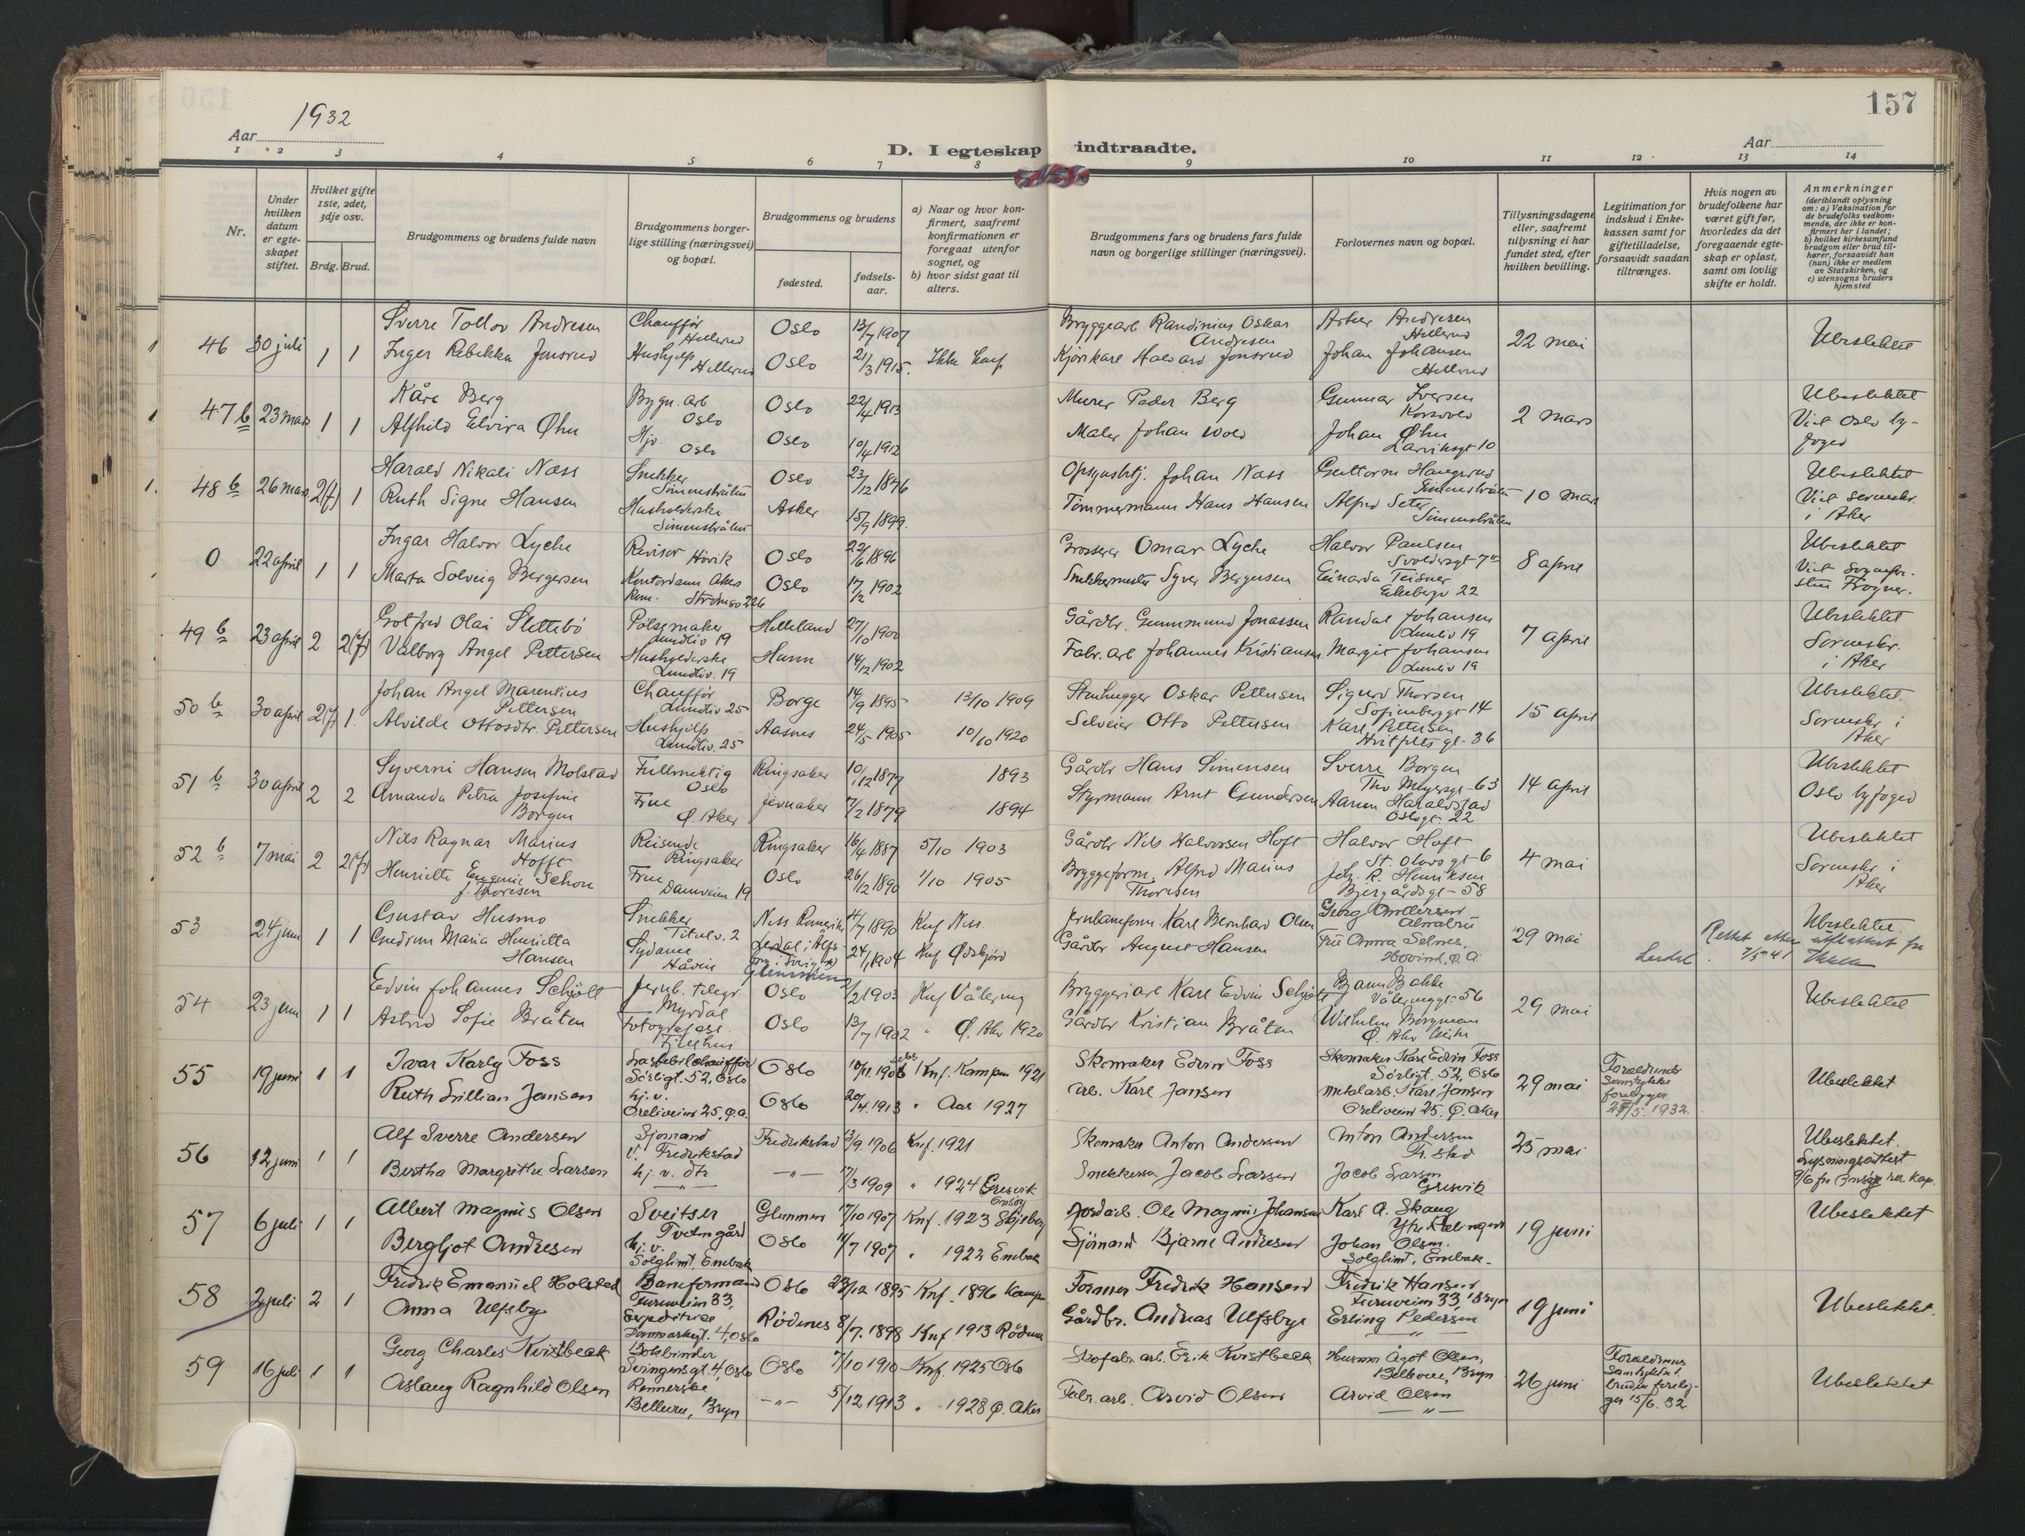 157
Aar 1932
Aar
D. I egteskap indtraadte.
1 2 3 4 5 6 7 8 9 10 11 12 13 14
Nr.
Under hvilken datum er egteskapet stiftet.
Hvilket gifte 1ste, 2det, 3dje osv.
Brdg. Brud.
Brudgommens og brudens fulde navn
Brudgommens borgerlige stilling (næringsvei) og bopæl.
Brudgommens og brudens
fødested.
fødselsaar.
a) Naar og hvor konfirmert, saafremt konfirmationen er foregaat utenfor sognet, og
b) hvor sidst gaat til alters.
Brudgommens fars og brudens fars fulde navn og borgerlige stillinger (næringsvei).
Forlovernes navn og bopæl.
Tillysningsdagene eller, saafremt tillysning ei har fundet sted, efter hvilken bevilling.
Legitimation for indskud i Enkekassen samt for giftetilladelse, forsaavidt saadan tiltrænges.
Hvis nogen av brudefolkene har været gift før, hvorledes da det foregaaende egteskap er opløst, samt om lovlig skifte er holdt.
Anmerkninger (deriblandt oplysning om: a) Vaksination for de brudefolks vedkommende, der ikke er konfirmert her i landet; b) hvilket kirkesamfund brudgom eller brud tilhører, forsaavidt han (hun) ikke er medlem av Statskirken, og c) utensogns bruders hjemsted
46 30 juli 1 1 Sverre Tollov Andresen Chauffør Hellerud Oslo 13/7 1907 Bryggearb Randinius Oskar Andresen Andresen Hellerud 22 mai Ubeslektet
Inger Rebekka Jonsrud Hushjelp Hellerud Oslo 21/3 1915. Ikke konf Kjørekarl Halvard Jonsrud Johan Johansen Hellerud
47 b 23 mars 1 1 Kåre Berg Bygn. arb Oslo Oslo 22/4 1913 Murer Peder Berg Gunnar Iversen 2 mars Ubeslektet
Alfhild Elvira Øhn Hjv. Oslo Oslo 10/4 1912 Maler Johan Johan Øhn Larviksgt 10 Viet Oslo byfoged
48 b 26 mars 2(f) 1 Harald Nikolai Næss Snekker Simensbråten Oslo 23/12 1896 Johan Næss Guttorm Haugerud 10 mars Ubeslektet
Ruth Signe Hansen Husholderske Simensbråten Asker 15/9 1899. Tømmermann Hans Hansen Alfred Seter Simensbråten Viet Sorenskr. i Aker
0 22 april 1 1 Ingar Halvor Lyche Revisor Høvik Oslo 22/6 1896 Grosserer Omar Lyche Halvor Paulsen 8 april Ubeslektet
Marta Solveig Bergersen Kontordame Oslo 17/2 1902 Snekkermester Syver Bergersen Einarda Teisner Ekeberg 22 Viet Sognepr. Frogner.
49 b 23 april 2 2(f) Gotfred Olai Slettebö Pølsemaker Lundliv 19 Helleland 27/10 1900 Gårdbr. Gunnmund Jonassen Randal Johansen Lundliv 19 7 april Ubeslektet
Valborg Angel Pettersen Husholderske Lundliv. 19 Hunn 14/12 1902 Fabr. arb Johannes Kristiansen Margit Johansen Lunliv 19 Sorenskr. i Aker
50 b 30 april 2(f) 1. Johan Angel Marentius Pettersen Chauffør Lundliv 25 Borge 14/9 1895 13/10 1909 Stenhugger Oskar Pettersen Sigurd Thorsen Sofienberggt 14 15 april Ubeslektet.
Alvilde Ottosdtr Pettersen Hushjelp Lundliv. 25 Aasnes 24/5 1905 10/10 1920 Selveier Otto Pettersen Karl Pettersen Hvitfeltsgt. 36 Sorenskr i Aker
51 b 30 april 2 2 Syverni Hansen Molstad Fullmektig Oslo Ringsaker 10/12 1877 1893 Gårdbr Hans Simensen Sverre Borgen Tho Meyersgt 63 14 april Ubeslektet
Amanda Petra Josefine Borgen Frue Ø. Aker Jevnaker 7/2 1879 1894 Styrmann Arnt Gundersen Aanon Haraldstad Oslogt 22 Oslo byfoged
52 b 7 mai 2 2(f) Nils Ragnar Marius Hofft Reisende Ringsaker Ringsaker 16/4 1887 5/10 1903 Gårdbr Nils Halvorsen Hoft Halvor Hoft St. Olavsgt 6 4 mai Ubeslektet
Henriette Eugenie Schou f. Thoresen Frue Damveien 19 Oslo 26/12 1890 1/10 1905 Bryggeform. Alfred Marius Thoresen Joh. R. Henriksen Bjergårdsgt 58 Sorenskr i Aker
53 24 juni 1 1 Gustav Husmo Snekker Titulv. 2 Nes Romerike 4/7 1890 Knf Nes Jernbaneform Karl Bernhard Olsen Georg Andersen 29 mai Ubeslektet.
Gudrun Maria Henrietta Hansen Sydame 24/1 1904 Knf Gårdbr August Hansen Fru Anna Selnes, Hovind, Ø. A. Rettet etter 7/5 41
Glemmen
54 23 juni 1 1 Edvin Johannes Schjølt Jernb. telegr Myrdal Oslo 2/2 1903 Knf Vålereng Bryggeriarb Karl Edvin Schjølt Bjarn Bakke Vålerenggt 56 29 mai Ubeslektet
Astrid Sofie Bråten Oslo 13/7 1902 " Ø. Aker 1920 Gårdbr Kristian Bråten Wilhelm Bergman
55 19 juni 1 1 Ivar Karly Foss Lastebilchauffør Sörligt. 52, Oslo Oslo 10/11. 1906 Knf. Kampen 1921 Skomaker Edvin Foss Skomaker Karl Edvin Foss Sörligt. 52, Oslo 29 mai Foreldrenes samtykke foreligger 27/5 1932. Ubeslektet
Ruth Lillian Jansen hj. v. Oreliveien 25, Ø. A. Oslo 20/4. 1913 " Aas 1927 arb. Karl Jansen Metalarb. Karl Jansen Oreliveien 25, Ø. Aker
56 12 juni 1 1 Alf Sverre Andersen Sjømand v. Fredrikstad Fredrikstad 13/9 1906 Knf. 1921 Skomaker Anton Andersen Anton Andersen Fr. stad 25 mai Ubeslektet.
Bertha Margrethe Larsen hj. v. dtr -"- 17/3 1909 " 1924 Gresvik Onsöy Snekker Jacob Larsen Jacob Larsen Gresvik Lysningsattest 9/6 fra Onsøy res. kap.
57 6 juli 1 1 Albert Magnus Olsen Sveitser Glemmen 7/10 1907 Knf. 1923 Skjeberg Jordarb. Ole Magnus Johansen Karl A. Skaug 19 juni Ubeslektet
Bergljot Andresen hj. v. Solglimt, Enebak Oslo 11/7 1907 " 1922 Enebak Sjömand Bjarne Andresen Johan Olsen. Solglimt, Enebak.
58 2 juli 2 1 Fredrik Emanuel Holstad Baneformand Furuveien 33, Oslo 23/12 1895 Knf. 1896 Kampen Former Fredrik Hansen Fredrik Hansen Furuveien 33, Bryn 19 juni Ubeslektet.
Anna Ulfsbye Expeditrice Rödenes 8/7. 1898 Knf. 1913 Rödenes Gårdbr. Andreas Ulfsbye Erling Pedersen -"-
59 16 juli 1 1 Georg Charles Kvistbeck Bokbinder Svingensgt. 4, Oslo Oslo 7/10 1910 Knf. 1925 Oslo Skofabr. arb. Erik Kvistbeck Husmor Ågot Olsen, Bellevue, Bryn 26 juni Foreldrenes samtykke t. bruden foreligger 15/6. 32 Ubeslektet
Aslaug Ragnhild Olsen Bellevue, Bryn -"- 5/12 1913 " 1928 Ø. Aker Fabr. arb. Arvid Olsen Arvid Olsen -"-